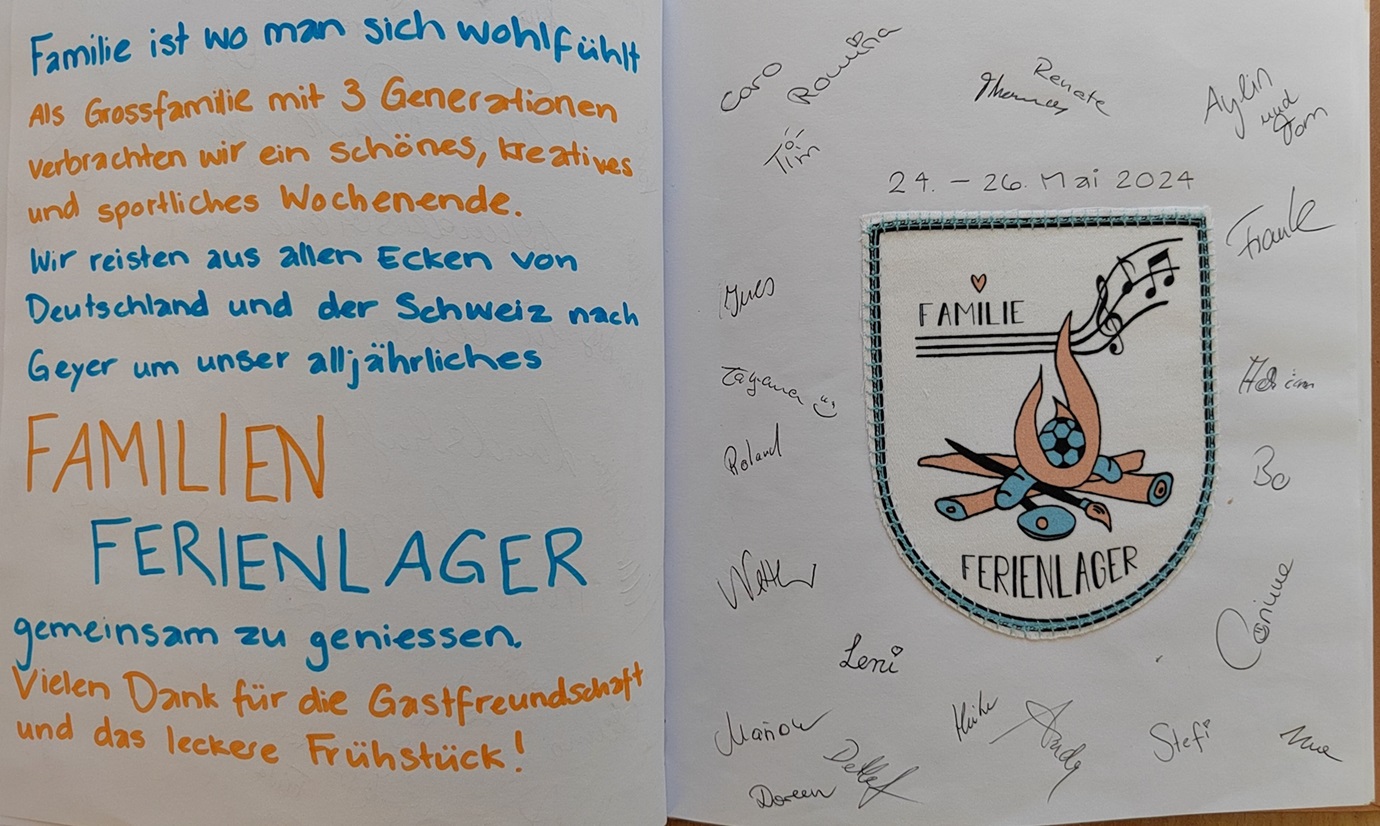 Familie ist wo man sich wohlfühlt
Als Grossfamilie mit 3 Generationen
verbrachten wir ein schönes, kreatives
und sportliches Wochenende.
Wir reisten aus allen Ecken von
Deutschland und der Schweiz nach
Geyer um unser alljährliches
FAMILIEN
FERIENLAGER
gemeinsam zu geniessen.
Vielen Dank für die Gastfreundschaft
und das leckere Frühstück!
Caro
Romina
Renate
Thomas
Aylin
und
Tom
Tim
24. - 26. Mai 2024
Frank
FAMILIE
Roland
Bo
FERIENLAGER
Corinne
Leni
Heike
Andy
Stefi
Detlef
Doreen